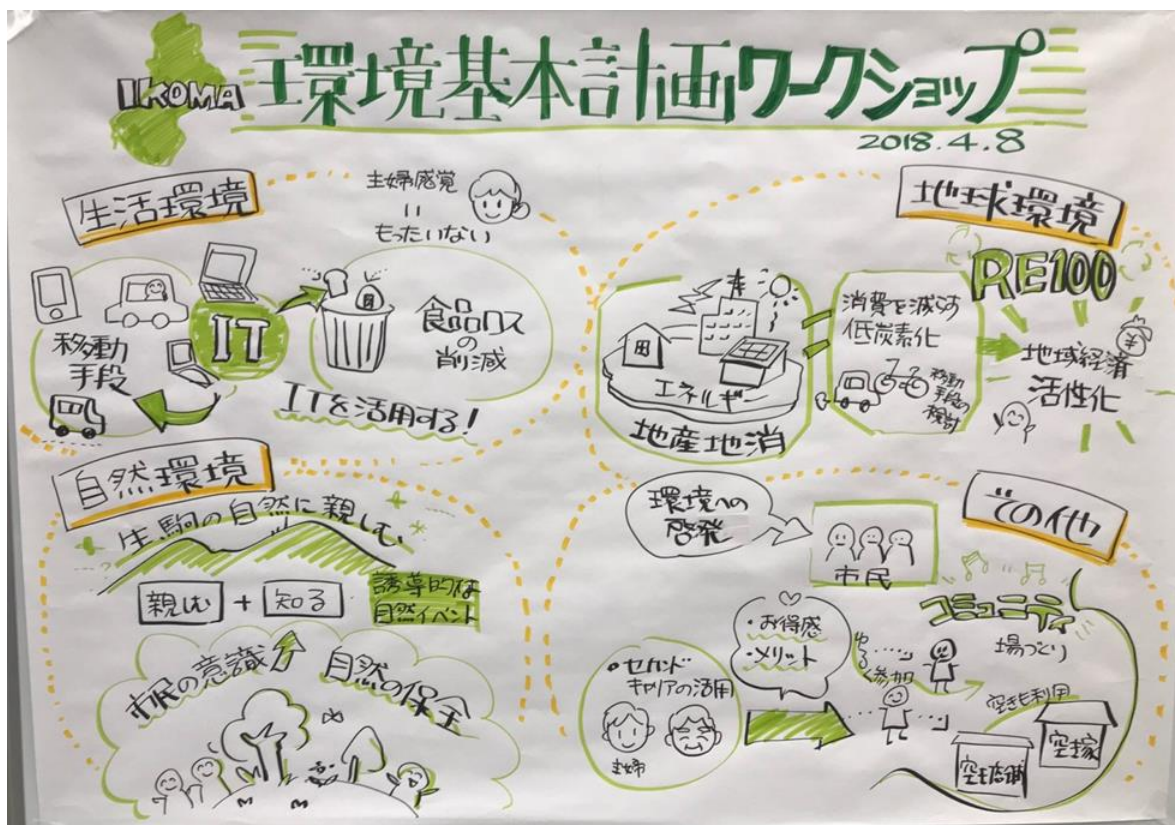 IKOMA
環境基本計画ワークショップ
2018.4.8
生活環境
主婦感覚
=
もったいない
移動
手段
IT
食品ロス
の
削減
ITを活用する!
地球環境
RE100
エネルギー
地産地消
=
消費を減らす
低炭素化
移動
手段の
検討
¥
地域経済
活性化
自然環境
生駒の自然に親しむ
親しむ + 知る
誘導的な
自然イベント
市民の意識
自然の保全
その他
環境への
啓発
市民
・セカンド
キャリアの活用
主婦
・お得感
・メリット
ゆるく参加
コミュニティ
場づくり
空きも利用
空き店舗
空き家